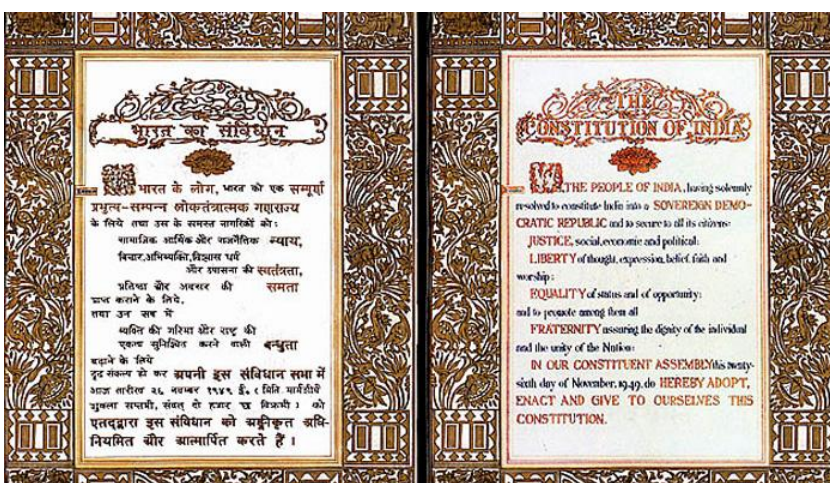 भारत का संविधान
हम भारत के लोग, भारत को एक सम्पूर्ण
प्रभुत्व-सम्पन्न लोकतंत्रात्मक गणराज्य
के लिये तथा उस के समस्त नागरिकों को:
सामाजिक आर्थिक और राजनैतिक न्याय,
विचार,अभिव्यक्ति,विश्वास धर्म
और उपासना की स्वतंत्रता,
प्रतिष्ठा और अवसर की समता
प्राप्त कराने के लिये,
तथा उन सब में
व्यक्ति की गरिमा और राष्ट्र की
एकता सुनिश्चित करने वाली बन्धुता
बढ़ाने के लिये
दृढ़ संकल्प हो कर अपनी इस संविधान सभा में
आज तारीख २६ नवम्बर १९४९ ई. (मिति मार्गशीर्ष
शुक्ला सप्तमी, संवत् दो हजार छ विक्रमी) को
एतद्द्वारा इस संविधान को अङ्गीकृत अधि-
नियमित और आत्मार्पित करते हैं।
THE
CONSTITUTION OF INDIA
WE, THE PEOPLE OF INDIA, having solemnly
resolved to constitute India into a SOVEREIGN DEMO-
CRATIC REPUBLIC and to secure to all its citizens:
JUSTICE, social, economic and political;
LIBERTY of thought, expression, belief, faith and
worship;
EQUALITY of status and of opportunity;
and to promote among them all
FRATERNITY assuring the dignity of the individual
and the unity of the Nation;
IN OUR CONSTITUENT ASSEMBLY this twenty-
sixth day of November, 1949, do HEREBY ADOPT,
ENACT AND GIVE TO OURSELVES THIS
CONSTITUTION.